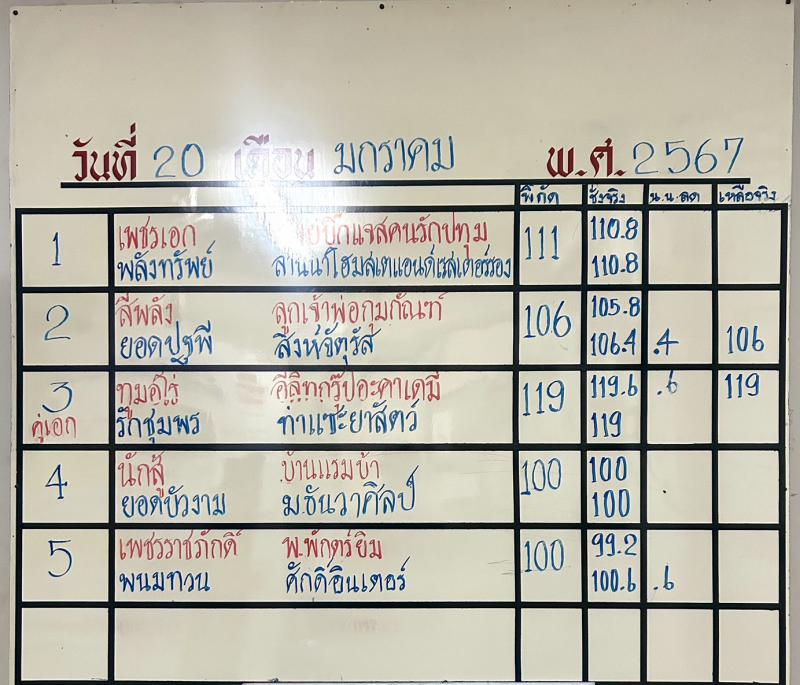 วันที่ 20 เดือน มกราคม พ.ศ. 2567
พิกัด ชั่งจริง น.น.ลด เหลือจริง
1 เพชรเอก 111 110.8
พลังทรัพย์ ลานนาโฮมสเตแอนด์เรสเตอร์รอง 110.8
2 สีพลัง ลูกเจ้าพ่อกุมภัณฑ์ 106 105.8
ยอดปฐพี สิงห์จัตุรัส 106.4 .4 106
3 อีลิทกรุ๊ปอะคาเดมี 119 119.6 .6 119
คู่เอก รักชุมพร ท่าแซะยาสัตว์ 119
4 นักสู้ บ้านแรมบ้า 100 100
ยอดบัวงาม ม.ธันวาศิลป์ 100
5 เพชรราชภักดี พ.พักตร์ยิม 100 99.2
พนมทวน ศักดิ์อินเตอร์ 100.6 .6